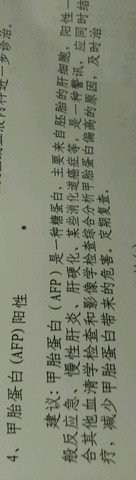 内科进一步诊治。
4、甲胎蛋白(AFP)阳性
建议：甲胎蛋白（AFP）是一种糖蛋白，主要来自胚胎的肝细胞，阳性一
般反应急、慢性肝炎、肝硬化、某些消化道癌症等，是一种警讯，应同时结
合其他血清学检查和影像学检查综合分析甲胎蛋白偏高的原因，及时治
疗，减少甲胎蛋白带来的危害。定期复查。